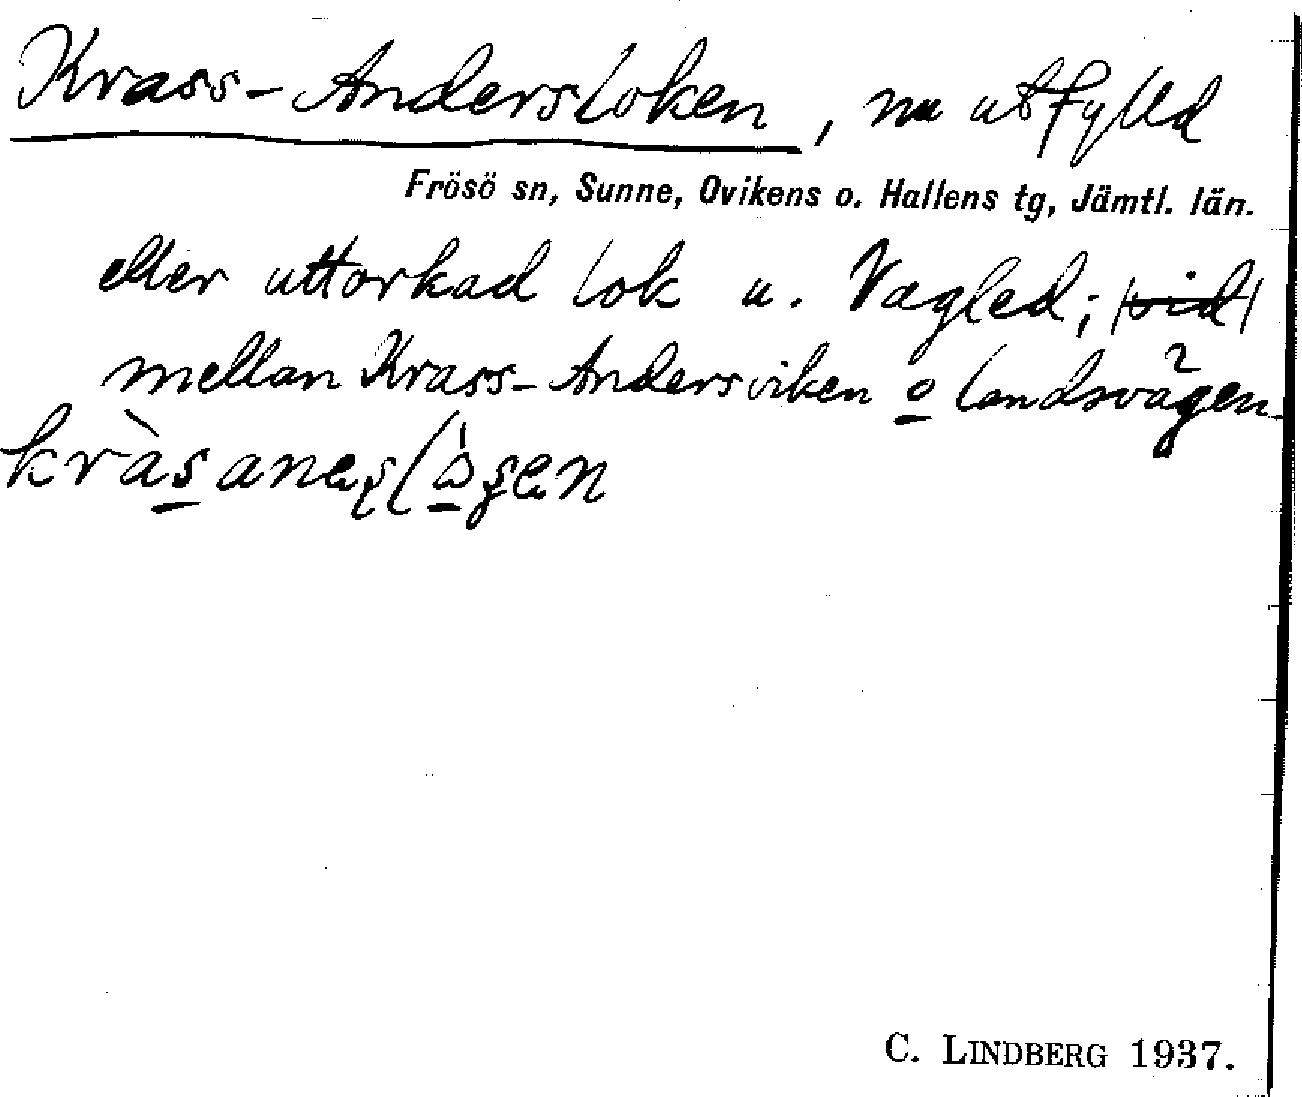 Krass-Andersloken, nu utfylld
Frösö sn, Sunne, Ovikens o. Hallens tg, Jämtl. län.
eller uttorkad lok u. Vagled; |vid|
mellan Krass-Andersviken o landsvägen
C. LINDBERG 1937.